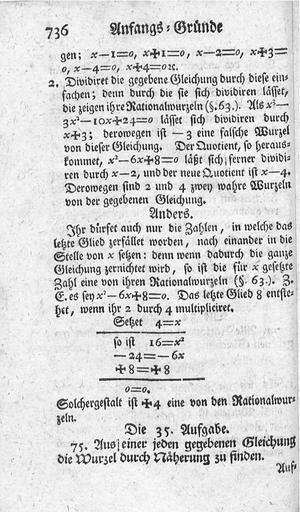 736 Anfangs-Gründe
gen; x—1=0, x✠1=0, x—2=0, x✠3=
0, x—4=0, x✠4=0 ꝛc.
2. Dividiret die gegebene Gleichung durch diese ein-
fachen; denn durch die sie sich dividiren lässet,
die zeigen ihre Rationalwurzeln (§. 63.). Als x³—
3x²—10x✠24=0 lässet sich dividiren durch
x✠3; derowegen ist —3 eine falsche Wurzel
von dieser Gleichung. Der Quotient, so heraus-
kommet, x²—6x✠8=0 läßt sich ferner dividi-
ren durch x—2, und der neue Quotient ist x—4.
Derowegen sind 2 und 4 zwey wahre Wurzeln
von der gegebenen Gleichung.
Anders.
Ihr dürfet auch nur die Zahlen, in welche das
letzte Glied zerfället worden, nach einander in die
Stelle von x setzen: denn wenn dadurch die ganze
Gleichung zernichtet wird, so ist die für x gesetzte
Zahl eine von ihren Rationalwurzeln (§. 63.). Z.
E. es sey x²—6x✠8=0. Das letzte Glied 8 entste-
het, wenn ihr 2 durch 4 multipliciret.
Setzet 4=x
so ist 16=x²
—24=—6x
✠8=✠8
0=0.
Solchergestalt ist ✠4 eine von den Rationalwur-
zeln.
Die 35. Aufgabe.
75. Aus einer jeden gegebenen Gleichung
die Wurzel durch Näherung zu finden.
Auf-